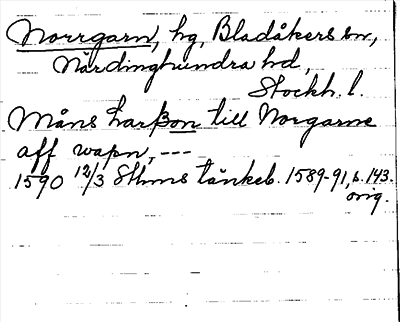 Norrgarn, hg, Bladåkers sn,
Närdinghundra hd,
Stockh. l.
Måns Larßon till Norgarne
aff wapn, ---
1590 12/3 Sthms tänkeb. 1589-91, s. 143.
orig.